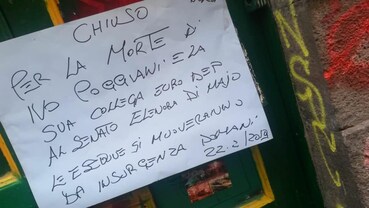 CHIUSO
PER LA MORTE DI
IVO POGGIANI E LA
SUA COLLEGA EURO DEP
AL SENATO ELEONORA DI MAJO
LE ESEQUIE SI MUOVERANNO
DA INSURGENZA DOMANI
22.2/2019